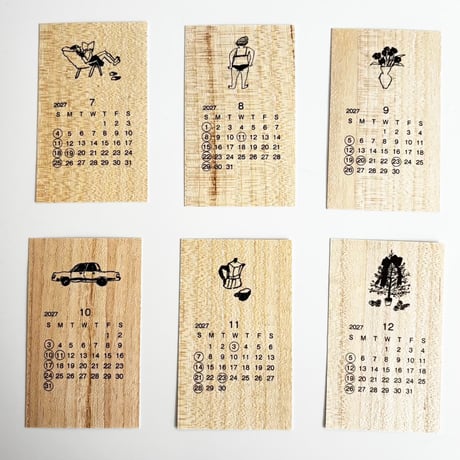 7
2027
S M T W T F S
1 2 3
4 5 6 7 8 9 10
11 12 13 14 15 16 17
18 19 20 21 22 23 24
25 26 27 28 29 30 31
8
2027
S M T W T F S
1 2 3 4 5 6 7
8 9 10 11 12 13 14
15 16 17 18 19 20 21
22 23 24 25 26 27 28
29 30 31
9
2027
S M T W T F S
1 2 3 4
5 6 7 8 9 10 11
12 13 14 15 16 17 18
19 20 21 22 23 24 25
26 27 28 29 30
10
2027
S M T W T F S
1 2
3 4 5 6 7 8 9
10 11 12 13 14 15 16
17 18 19 20 21 22 23
24 25 26 27 28 29 30
31
11
2027
S M T W T F S
1 2 3 4 5 6
7 8 9 10 11 12 13
14 15 16 17 18 19 20
21 22 23 24 25 26 27
28 29 30
12
2027
S M T W T F S
1 2 3 4
5 6 7 8 9 10 11
12 13 14 15 16 17 18
19 20 21 22 23 24 25
26 27 28 29 30 31